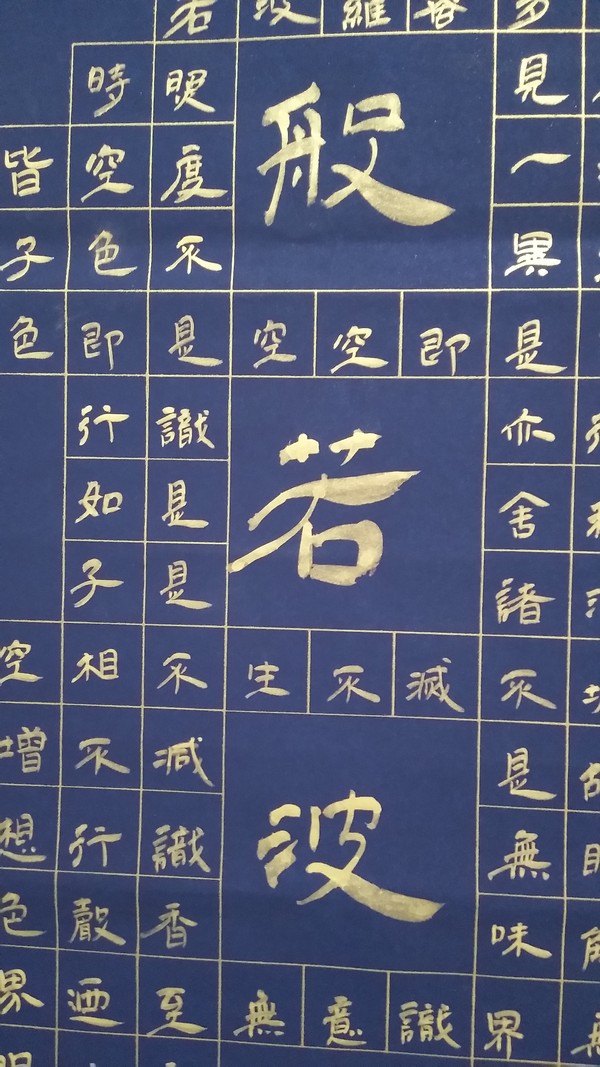 若波羅多
時見
般
皆空度一
子色不異
色即是空空即是
行識亦
若
如是舍
子是諸
空相不生不滅不
增不減是
波
想行識無
色聲香味
界迺至無意識界